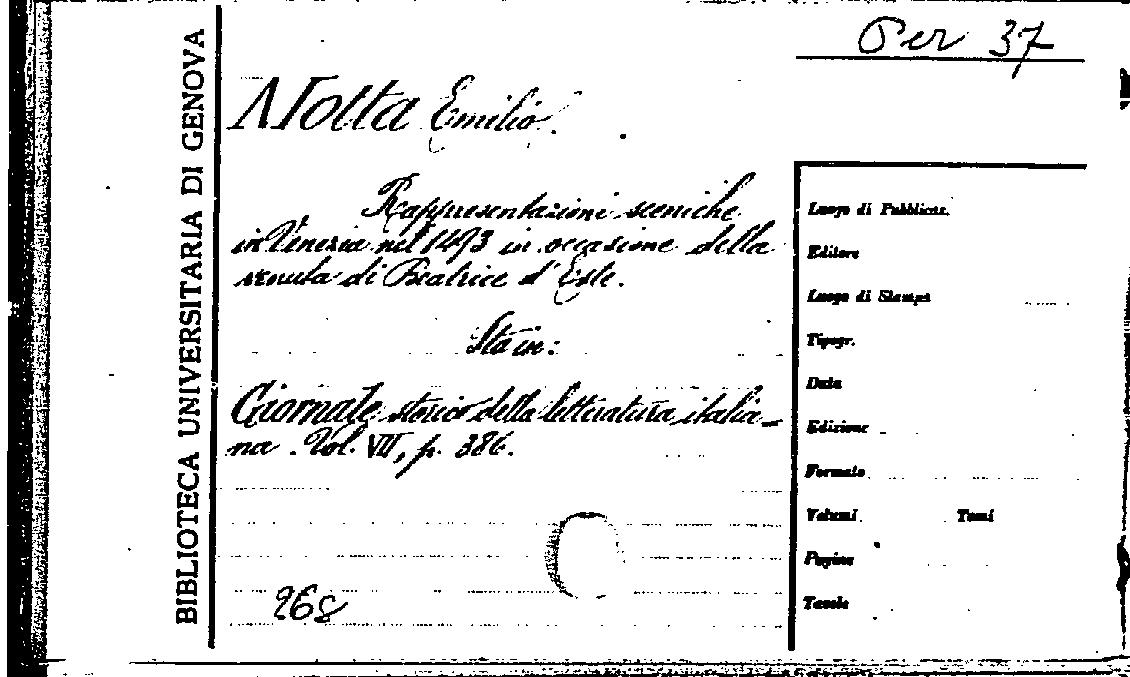 Per 37
BIBLIOTECA UNIVERSITARIA DI GENOVA
Motta Emilio.
Rappresentazioni sceniche
in Venezia nel 1493 in occasione della
venuta di Beatrice d'Este.
Sta in:
Giornale storico della letteratura italia-
na. Vol. VII, p. 386.
268
Luogo di Pubblicaz.
Editore
Luogo di Stampa
Tipogr.
Data
Edizione
Formato
Volumi Tomi
Pagine
Tavole